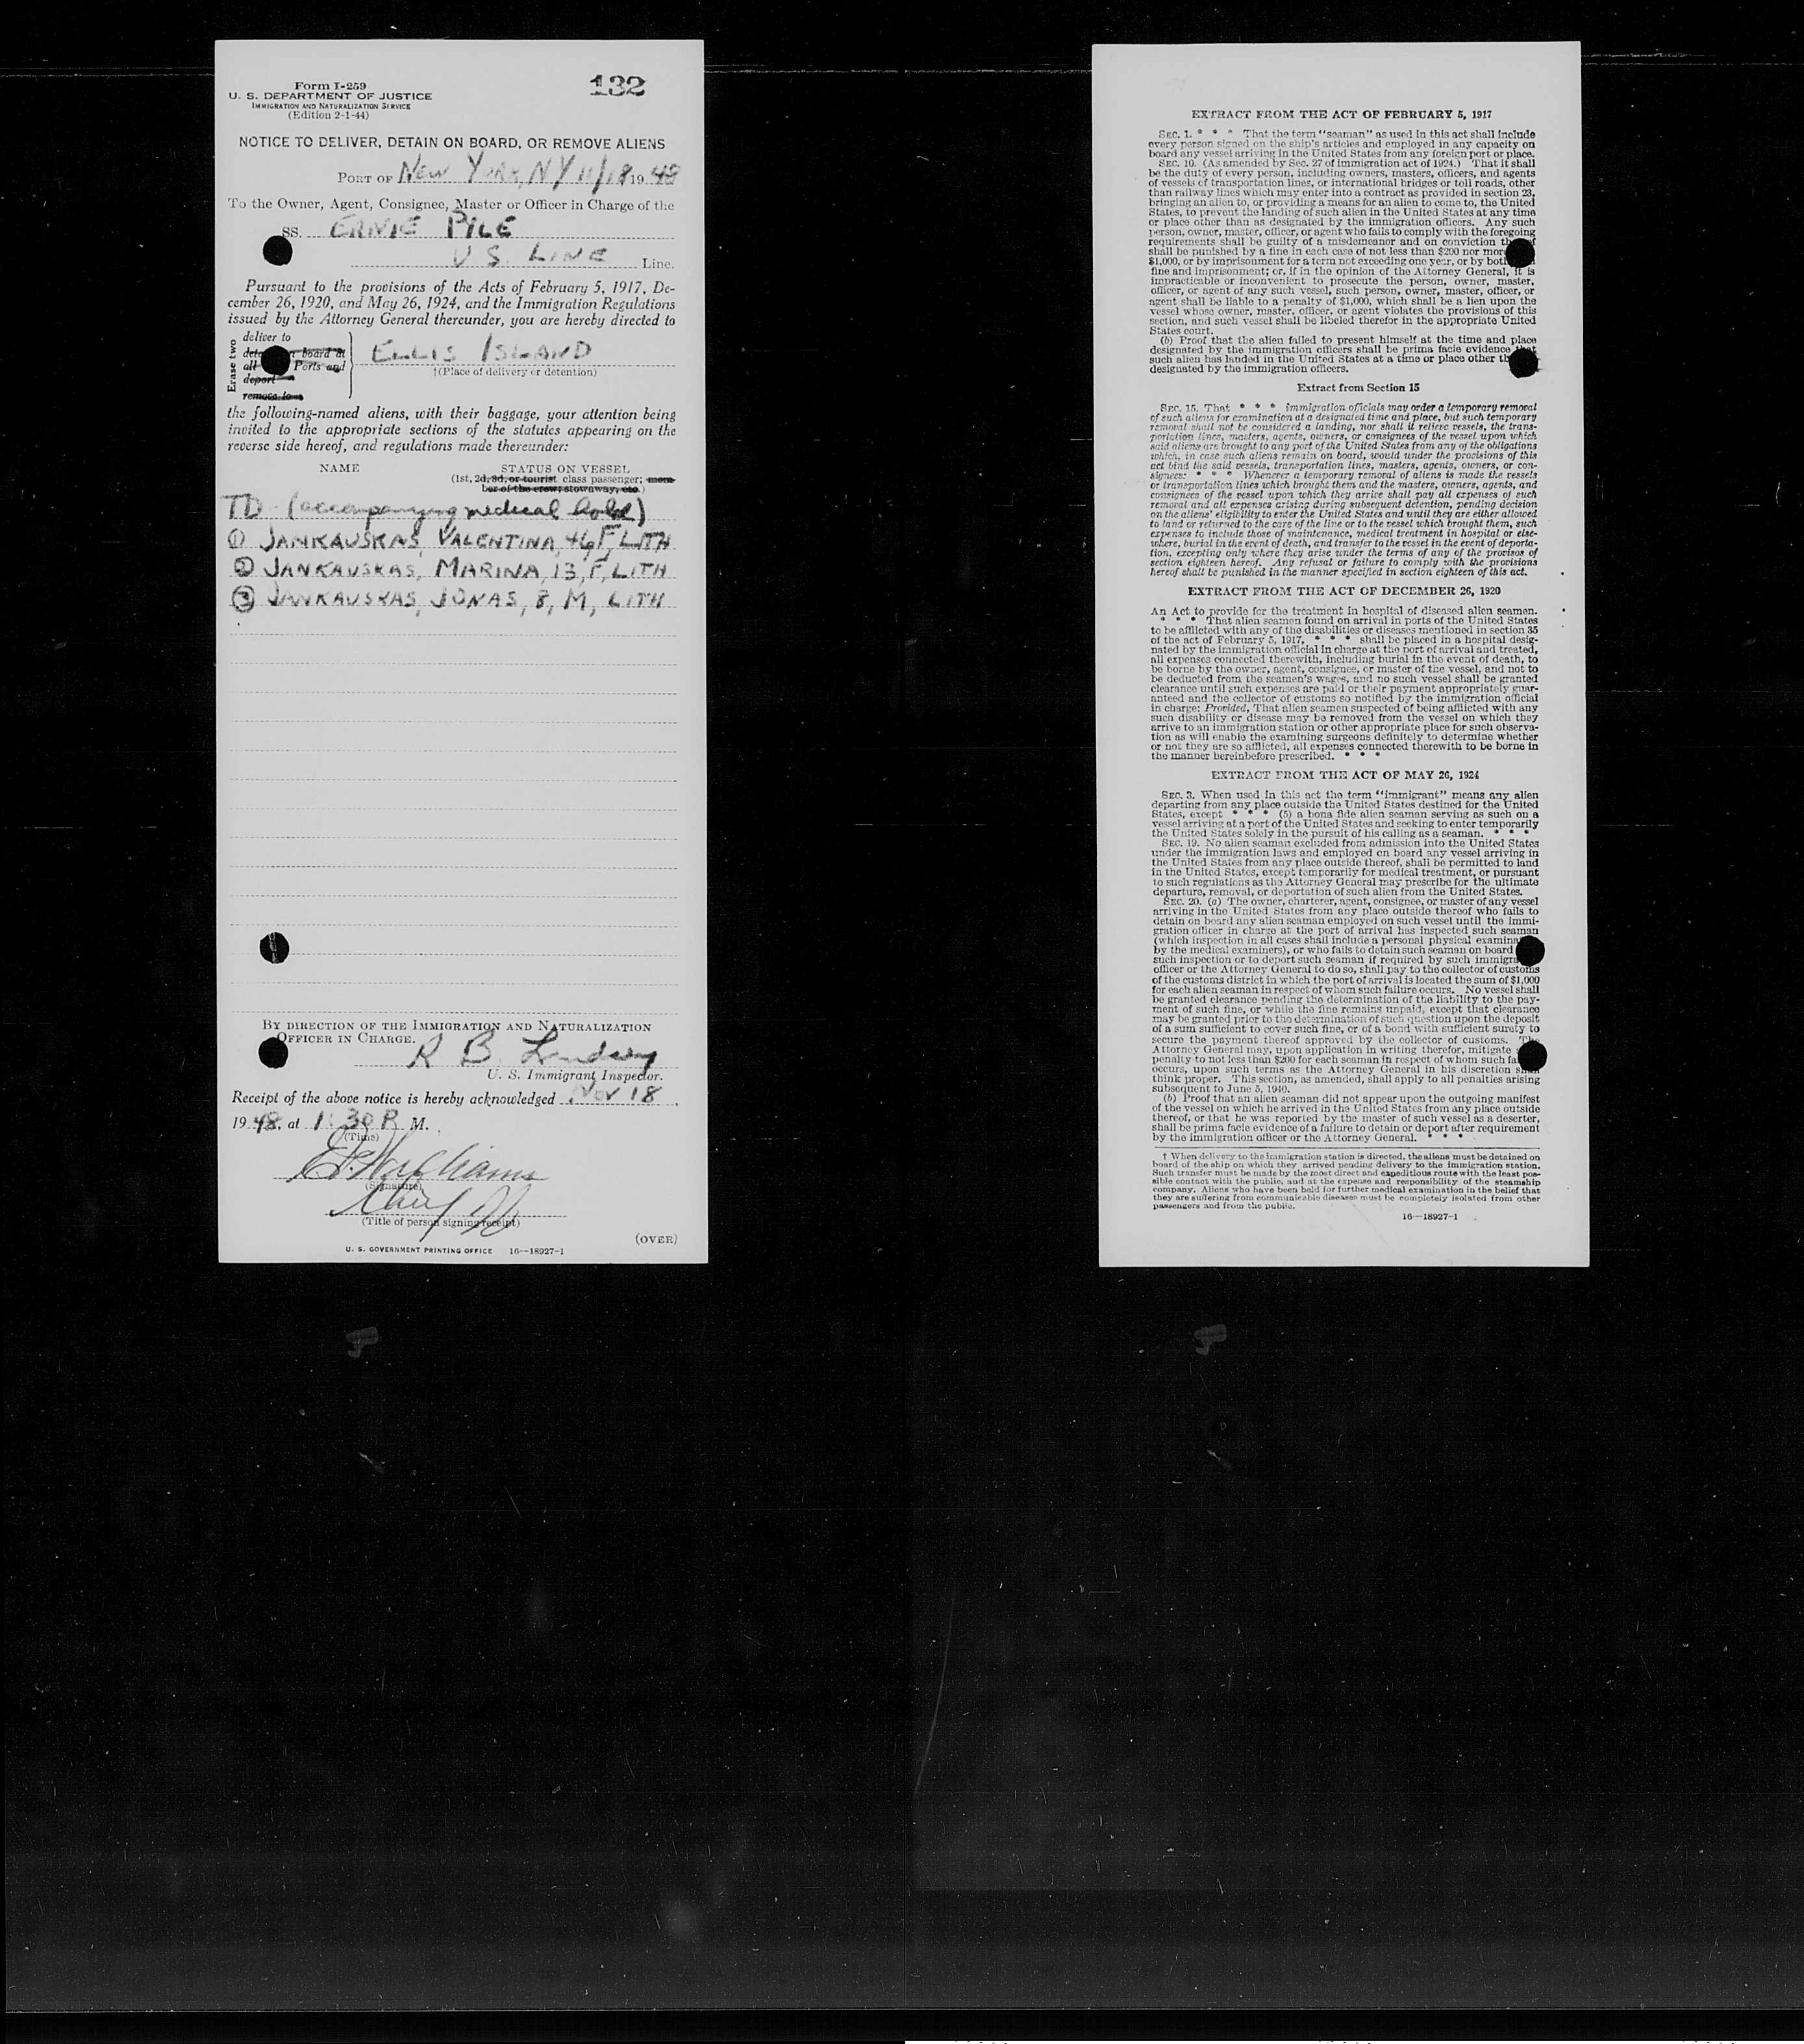 Form I-259
132
U. S. DEPARTMENT OF JUSTICE
IMMIGRATION AND NATURALIZATION SERVICE
(Edition 2-1-44)
NOTICE TO DELIVER, DETAIN ON BOARD, OR REMOVE ALIENS
PORT OF NEW YORK, NY 11/18 1948
To the Owner, Agent, Consignee, Master or Officer in Charge of the
SS. ERNIE PILE
U S. LINE Line.
Pursuant to the provisions of the Acts of February 5, 1917, De-
cember 26, 1920, and May 26, 1924, and the Immigration Regulations
issued by the Attorney General thereunder, you are hereby directed to
Erase two
deliver to
board at
all Ports and
deport
remove to
ELLIS ISLAND
†(Place of delivery or detention)
the following-named aliens, with their baggage, your attention being
invited to the appropriate sections of the statutes appearing on the
reverse side hereof, and regulations made thereunder:
NAME STATUS ON VESSEL
(1st, 2d, 3d, or tourist class passenger; mem-
ber of the crew; stowaway, etc.)
TD (accompanying medical hold)
① JANKAUSKAS, VALENTINA, 46, F, LITH
② JANKAUSKAS, MARINA, 13, F, LITH
③ JANKAUSKAS, JONAS, 8, M, LITH
BY DIRECTION OF THE IMMIGRATION AND NATURALIZATION
OFFICER IN CHARGE.
R B. Lindsey
U. S. Immigrant Inspector.
Receipt of the above notice is hereby acknowledged Nov 18,
1948, at 1:30 P. M.
(Time)
Williams
(Signature)
Chief
(Title of person signing receipt)
(OVER)
U. S. GOVERNMENT PRINTING OFFICE 16—18927-1
EXTRACT FROM THE ACT OF FEBRUARY 5, 1917
SEC. 1. * * * That the term "seaman" as used in this act shall include
every person signed on the ship's articles and employed in any capacity on
board any vessel arriving in the United States from any foreign port or place.
SEC. 10. (As amended by Sec. 27 of immigration act of 1924.) That it shall
be the duty of every person, including owners, masters, officers, and agents
of vessels of transportation lines, or international bridges or toll roads, other
than railway lines which may enter into a contract as provided in section 23,
bringing an alien to, or providing a means for an alien to come to, the United
States, to prevent the landing of such alien in the United States at any time
or place other than as designated by the immigration officers. Any such
person, owner, master, officer, or agent who fails to comply with the foregoing
requirements shall be guilty of a misdemeanor and on conviction
shall be punished by a fine in each case of not less than $200 nor more
$1,000, or by imprisonment for a term not exceeding one year, or by both
fine and imprisonment; or, if in the opinion of the Attorney General, it is
impracticable or inconvenient to prosecute the person, owner, master,
officer, or agent of any such vessel, such person, owner, master, officer, or
agent shall be liable to a penalty of $1,000, which shall be a lien upon the
vessel whose owner, master, officer, or agent violates the provisions of this
section, and such vessel shall be libeled therefor in the appropriate United
States court.
(b) Proof that the alien failed to present himself at the time and place
designated by the immigration officers shall be prima facie evidence that
such alien has landed in the United States at a time or place other
designated by the immigration officers.
Extract from Section 15
SEC. 15. That * * * immigration officials may order a temporary removal
of such aliens for examination at a designated time and place, but such temporary
removal shall not be considered a landing, nor shall it relieve vessels, the trans-
portation lines, masters, agents, owners, or consignees of the vessel upon which
said aliens are brought to any port of the United States from any of the obligations
which, in case such aliens remain on board, would under the provisions of this
act bind the said vessels, transportation lines, masters, agents, owners, or con-
signees: * * * Whenever a temporary removal of aliens is made the vessels
or transportation lines which brought them and the masters, owners, agents, and
consignees of the vessel upon which they arrive shall pay all expenses of such
removal and all expenses arising during subsequent detention, pending decision
on the aliens' eligibility to enter the United States and until they are either allowed
to land or returned to the care of the line or to the vessel which brought them, such
expenses to include those of maintenance, medical treatment in hospital or else-
where, burial in the event of death, and transfer to the vessel in the event of deporta-
tion, excepting only where they arise under the terms of any of the provisos of
section eighteen hereof. Any refusal or failure to comply with the provisions
hereof shall be punished in the manner specified in section eighteen of this act.
EXTRACT FROM THE ACT OF DECEMBER 26, 1920
An Act to provide for the treatment in hospital of diseased alien seamen.
* * * * That alien seamen found on arrival in ports of the United States
to be afflicted with any of the disabilities or diseases mentioned in section 35
of the act of February 5, 1917, * * * shall be placed in a hospital desig-
nated by the immigration official in charge at the port of arrival and treated,
all expenses connected therewith, including burial in the event of death, to
be borne by the owner, agent, consignee, or master of the vessel, and not to
be deducted from the seamen's wages, and no such vessel shall be granted
clearance until such expenses are paid or their payment appropriately guar-
anteed and the collector of customs so notified by the immigration official
in charge: Provided, That alien seamen suspected of being afflicted with any
such disability or disease may be removed from the vessel on which they
arrive to an immigration station or other appropriate place for such observa-
tion as will enable the examining surgeons definitely to determine whether
or not they are so afflicted, all expenses connected therewith to be borne in
the manner hereinbefore prescribed. * * *
EXTRACT FROM THE ACT OF MAY 26, 1924
SEC. 3. When used in this act the term "immigrant" means any alien
departing from any place outside the United States destined for the United
States, except * * * (5) a bona fide alien seaman serving as such on a
vessel arriving at a port of the United States and seeking to enter temporarily
the United States solely in the pursuit of his calling as a seaman. * * *
SEC. 19. No alien seaman excluded from admission into the United States
under the immigration laws and employed on board any vessel arriving in
the United States from any place outside thereof, shall be permitted to land
in the United States, except temporarily for medical treatment, or pursuant
to such regulations as the Attorney General may prescribe for the ultimate
departure, removal, or deportation of such alien from the United States.
SEC. 20. (a) The owner, charterer, agent, consignee, or master of any vessel
arriving in the United States from any place outside thereof who fails to
detain on board any alien seaman employed on such vessel until the immi-
gration officer in charge at the port of arrival has inspected such seaman
(which inspection in all cases shall include a personal physical
by the medical examiners), or who fails to detain such seaman on board
such inspection or to deport such seaman if required by such
officer or the Attorney General to do so, shall pay to the collector of customs
of the customs district in which the port of arrival is located the sum of $1,000
for each alien seaman in respect of whom such failure occurs. No vessel shall
be granted clearance pending the determination of the liability to the pay-
ment of such fine, or while the fine remains unpaid, except that clearance
may be granted prior to the determination of such question upon the deposit
of a sum sufficient to cover such fine, or of a bond with sufficient surety to
secure the payment thereof approved by the collector of customs. The
Attorney General may, upon application in writing therefor, mitigate
penalty to not less than $200 for each seaman in respect of whom such
occurs, upon such terms as the Attorney General in his discretion shall
think proper. This section, as amended, shall apply to all penalties arising
subsequent to June 5, 1940.
(b) Proof that an alien seaman did not appear upon the outgoing manifest
of the vessel on which he arrived in the United States from any place outside
thereof, or that he was reported by the master of such vessel as a deserter,
shall be prima facie evidence of a failure to detain or deport after requirement
by the immigration officer or the Attorney General. * * *
† When delivery to the immigration station is directed, the aliens must be detained on
board of the ship on which they arrived pending delivery to the immigration station.
Such transfer must be made by the most direct and expeditious route with the least pos-
sible contact with the public, and at the expense and responsibility of the steamship
company. Aliens who have been held for further medical examination in the belief that
they are suffering from communicable diseases must be completely isolated from other
passengers and from the public.
16—18927-1